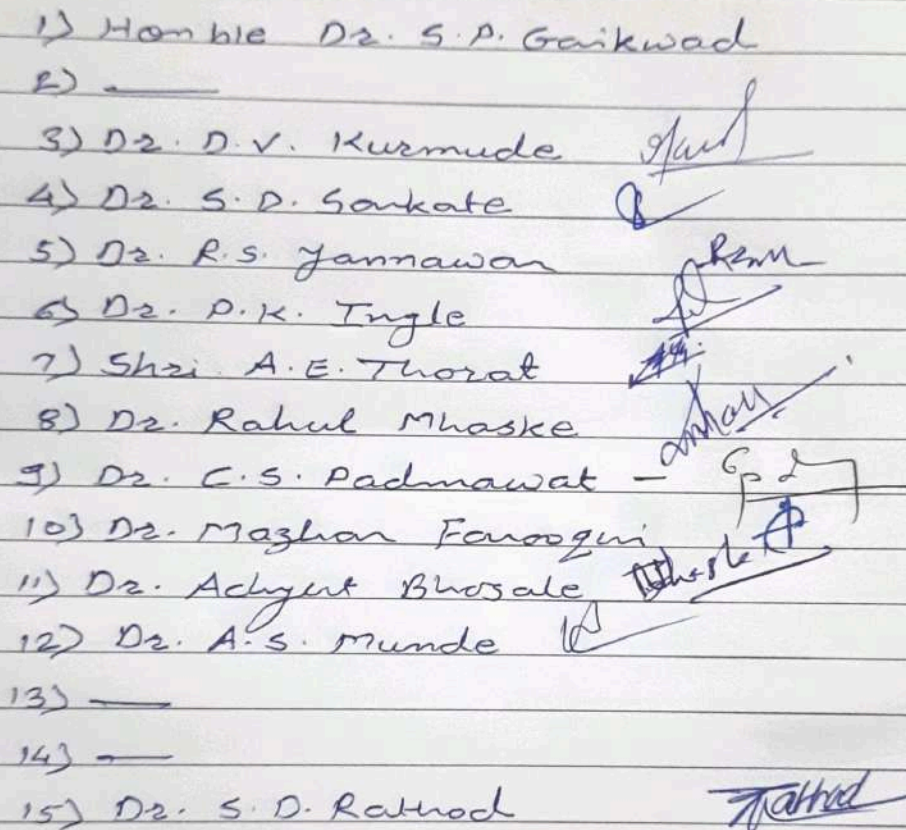 1) Hon'ble Dr. S.P. Gaikwad
2) —
3) Dr. D.V. Kurmude
4) Dr. S.D. Sarkate
5) Dr. R.S. Yannawar
6) Dr. P.K. Ingle
7) Shri. A.E. Thorat
8) Dr. Rahul Mhaske
9) Dr. C.S. Padmawat -
10) Dr. Mazhar Farooqui
11) Dr. Achyut Bhosale
12) Dr. A.S. Munde
13) —
14) —
15) Dr. S.D. Rathod Rathod